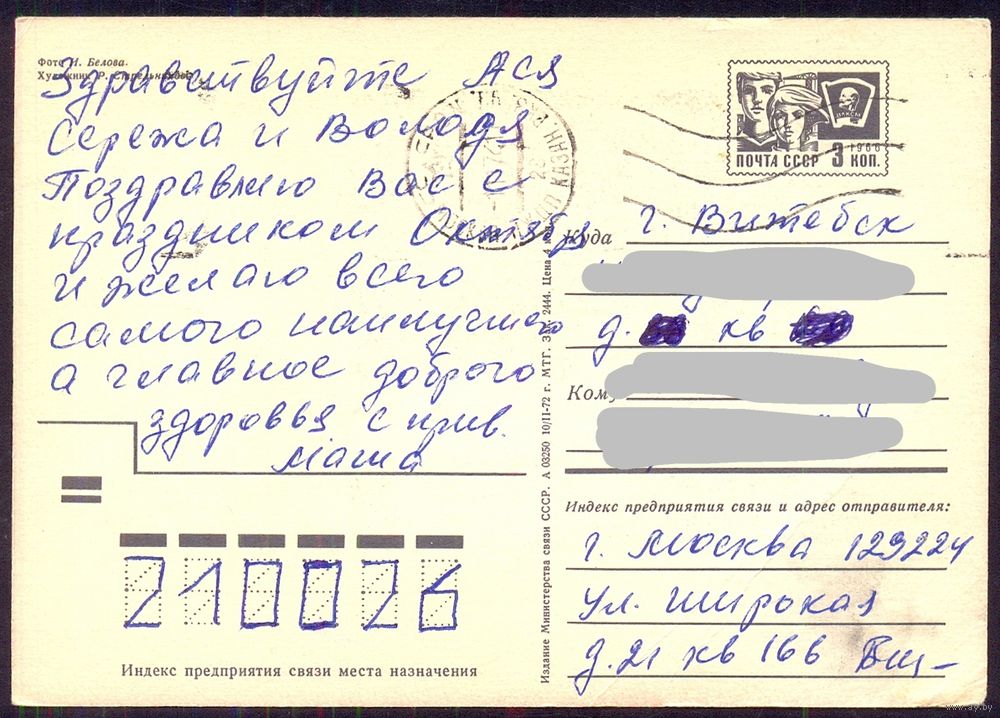 Фото И. Белова.
Художник Р. Стрельников
Здравствуйте Ася
Сережа и Володя
Поздравляю Вас с
праздником Октября
и желаю всего
самого наилучшего
а главное доброго
здоровья с прив.
Маша
ПОЧТА СССР 3 КОП.
1966
ВЛКСМ
Куда г. Витебск
д. кв
Кому
Индекс предприятия связи и адрес отправителя:
г. Москва 129224
ул. Широкая
д. 21 кв 166
210026
Индекс предприятия связи места назначения
Издание Министерства связи СССР. А 03250 10/II-72 г. МТГ. Зак. 2444. Цена 4
www.ay.by